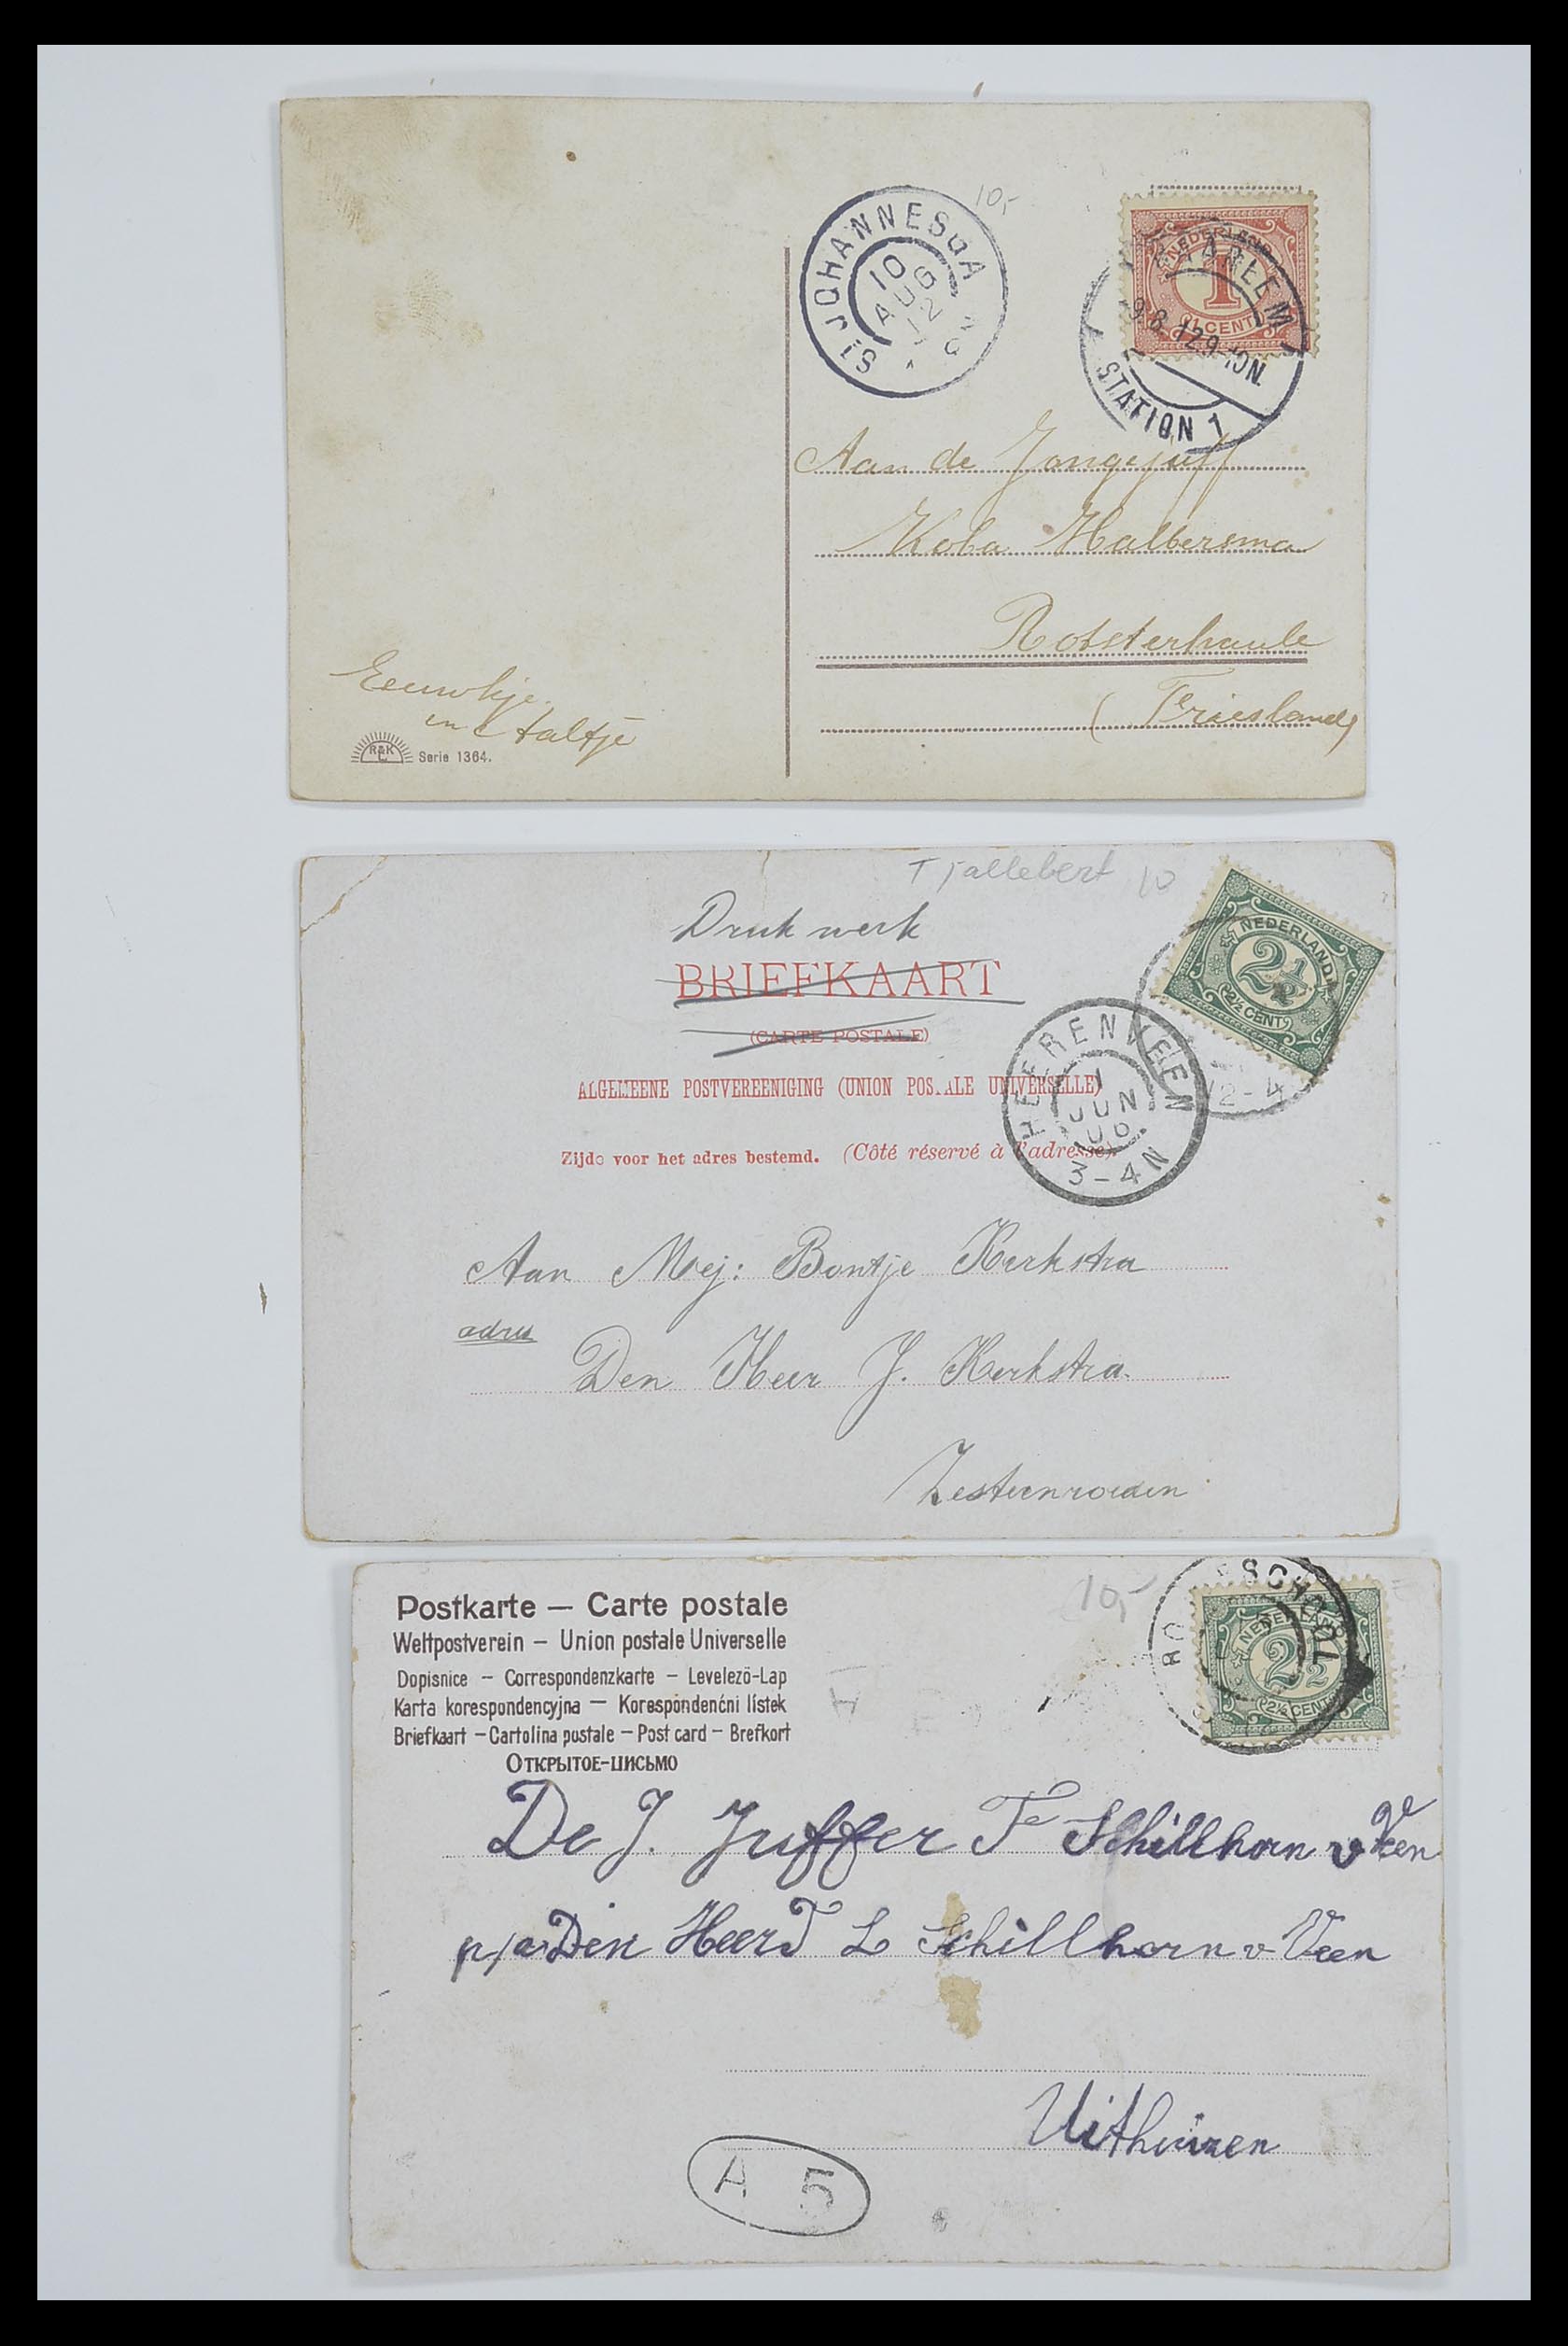 10,-
St JOHANNESGA
10
AUG
12
NEDERLAND
1
1 CENT
HAARLEM
9.8.12.9-10N.
STATION 1
Aan de Jongejuff
Koba Halbersma
Rotsterhaule
(Friesland)
Eeuwkje
en Aaltje
R&K
L
Serie 1364.
Tjallebert 10
Druk werk
BRIEFKAART
(CARTE POSTALE)
ALGEMEENE POSTVEREENIGING (UNION POSTALE UNIVERSELLE)
Zijde voor het adres bestemd. (Côté réservé à l'adresse).
NEDERLAND
2½
2½ CENT
12-4
HEERENVEEN
1
JUN
06
3-4N
Aan Mej: Bontje Kerkstra
adres
Den Heer J. Kerkstra.
10,-
Postkarte — Carte postale
Weltpostverein — Union postale Universelle
Dopisnice — Correspondenzkarte — Levelező-Lap
Karta korespondencyjna — Korespondenćni lístek
Briefkaart — Cartolina postale — Post card — Brefkort
Открытое-письмо
ROODESCHOOL
NEDERLAND
2½
2½ CENT
De J. Juffer Te Schillhorn v Veen
p/a Den Heer L Schillhorn v Veen
Uithuizen
A 5